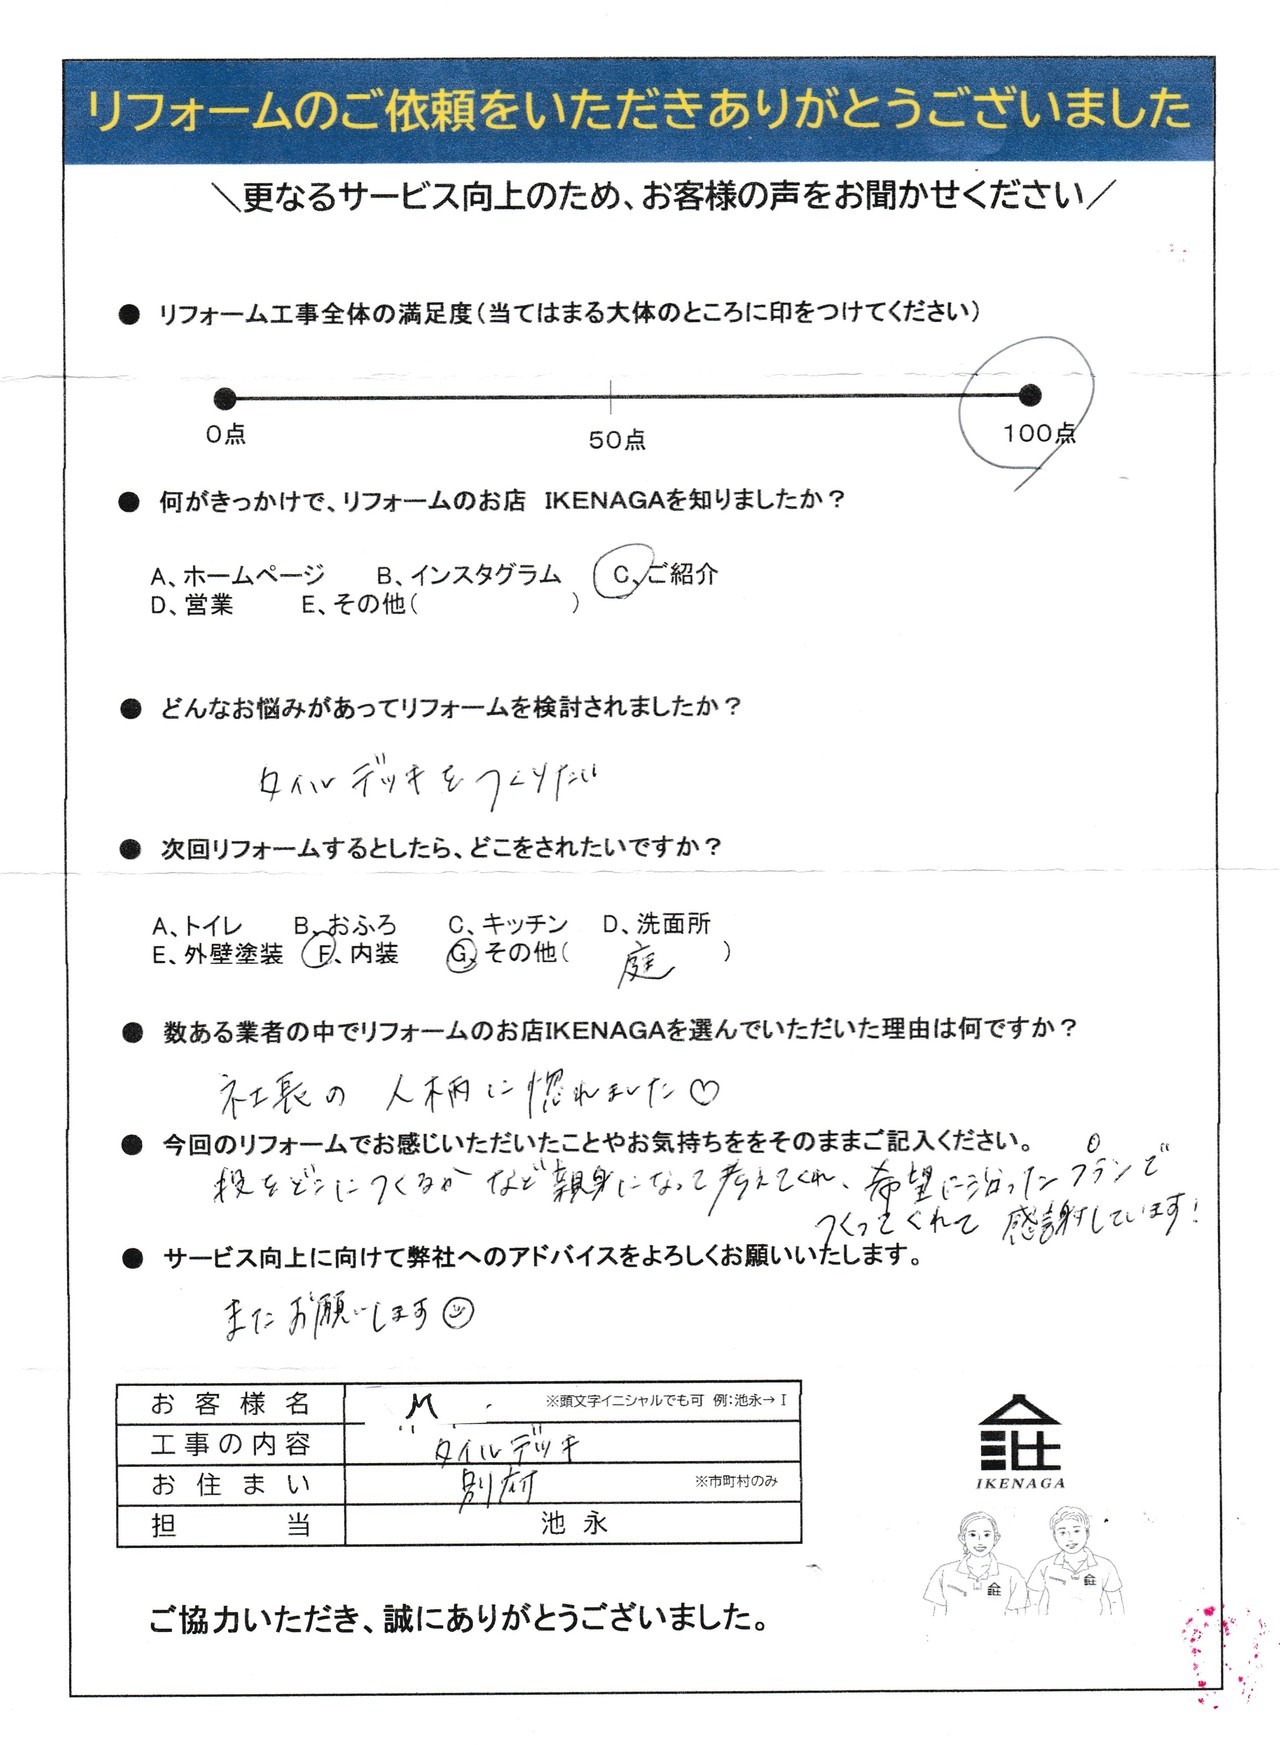 リフォームのご依頼をいただきありがとうございました
＼更なるサービス向上のため、お客様の声をお聞かせください／
● リフォーム工事全体の満足度（当てはまる大体のところに印をつけてください）
0点 50点 100点
● 何がきっかけで、リフォームのお店 IKENAGAを知りましたか？
A、ホームページ B、インスタグラム C、ご紹介
D、営業 E、その他（ ）
● どんなお悩みがあってリフォームを検討されましたか？
タイルデッキをつくりたい
● 次回リフォームするとしたら、どこをされたいですか？
A、トイレ B、おふろ C、キッチン D、洗面所
E、外壁塗装 F、内装 G、その他（ 庭 ）
● 数ある業者の中でリフォームのお店IKENAGAを選んでいただいた理由は何ですか？
社長の人柄に惚れました♡
● 今回のリフォームでお感じいただいたことやお気持ちををそのままご記入ください。
段をどこにつくるかなど親身になって考えてくれ、希望に沿ったプランで
つくってくれて感謝しています！
● サービス向上に向けて弊社へのアドバイスをよろしくお願いいたします。
またお願いします☺
お客様名 M ※頭文字イニシャルでも可 例：池永→I
工事の内容 タイルデッキ
お住まい 別府 ※市町村のみ
担当 池永
IKENAGA
ご協力いただき、誠にありがとうございました。